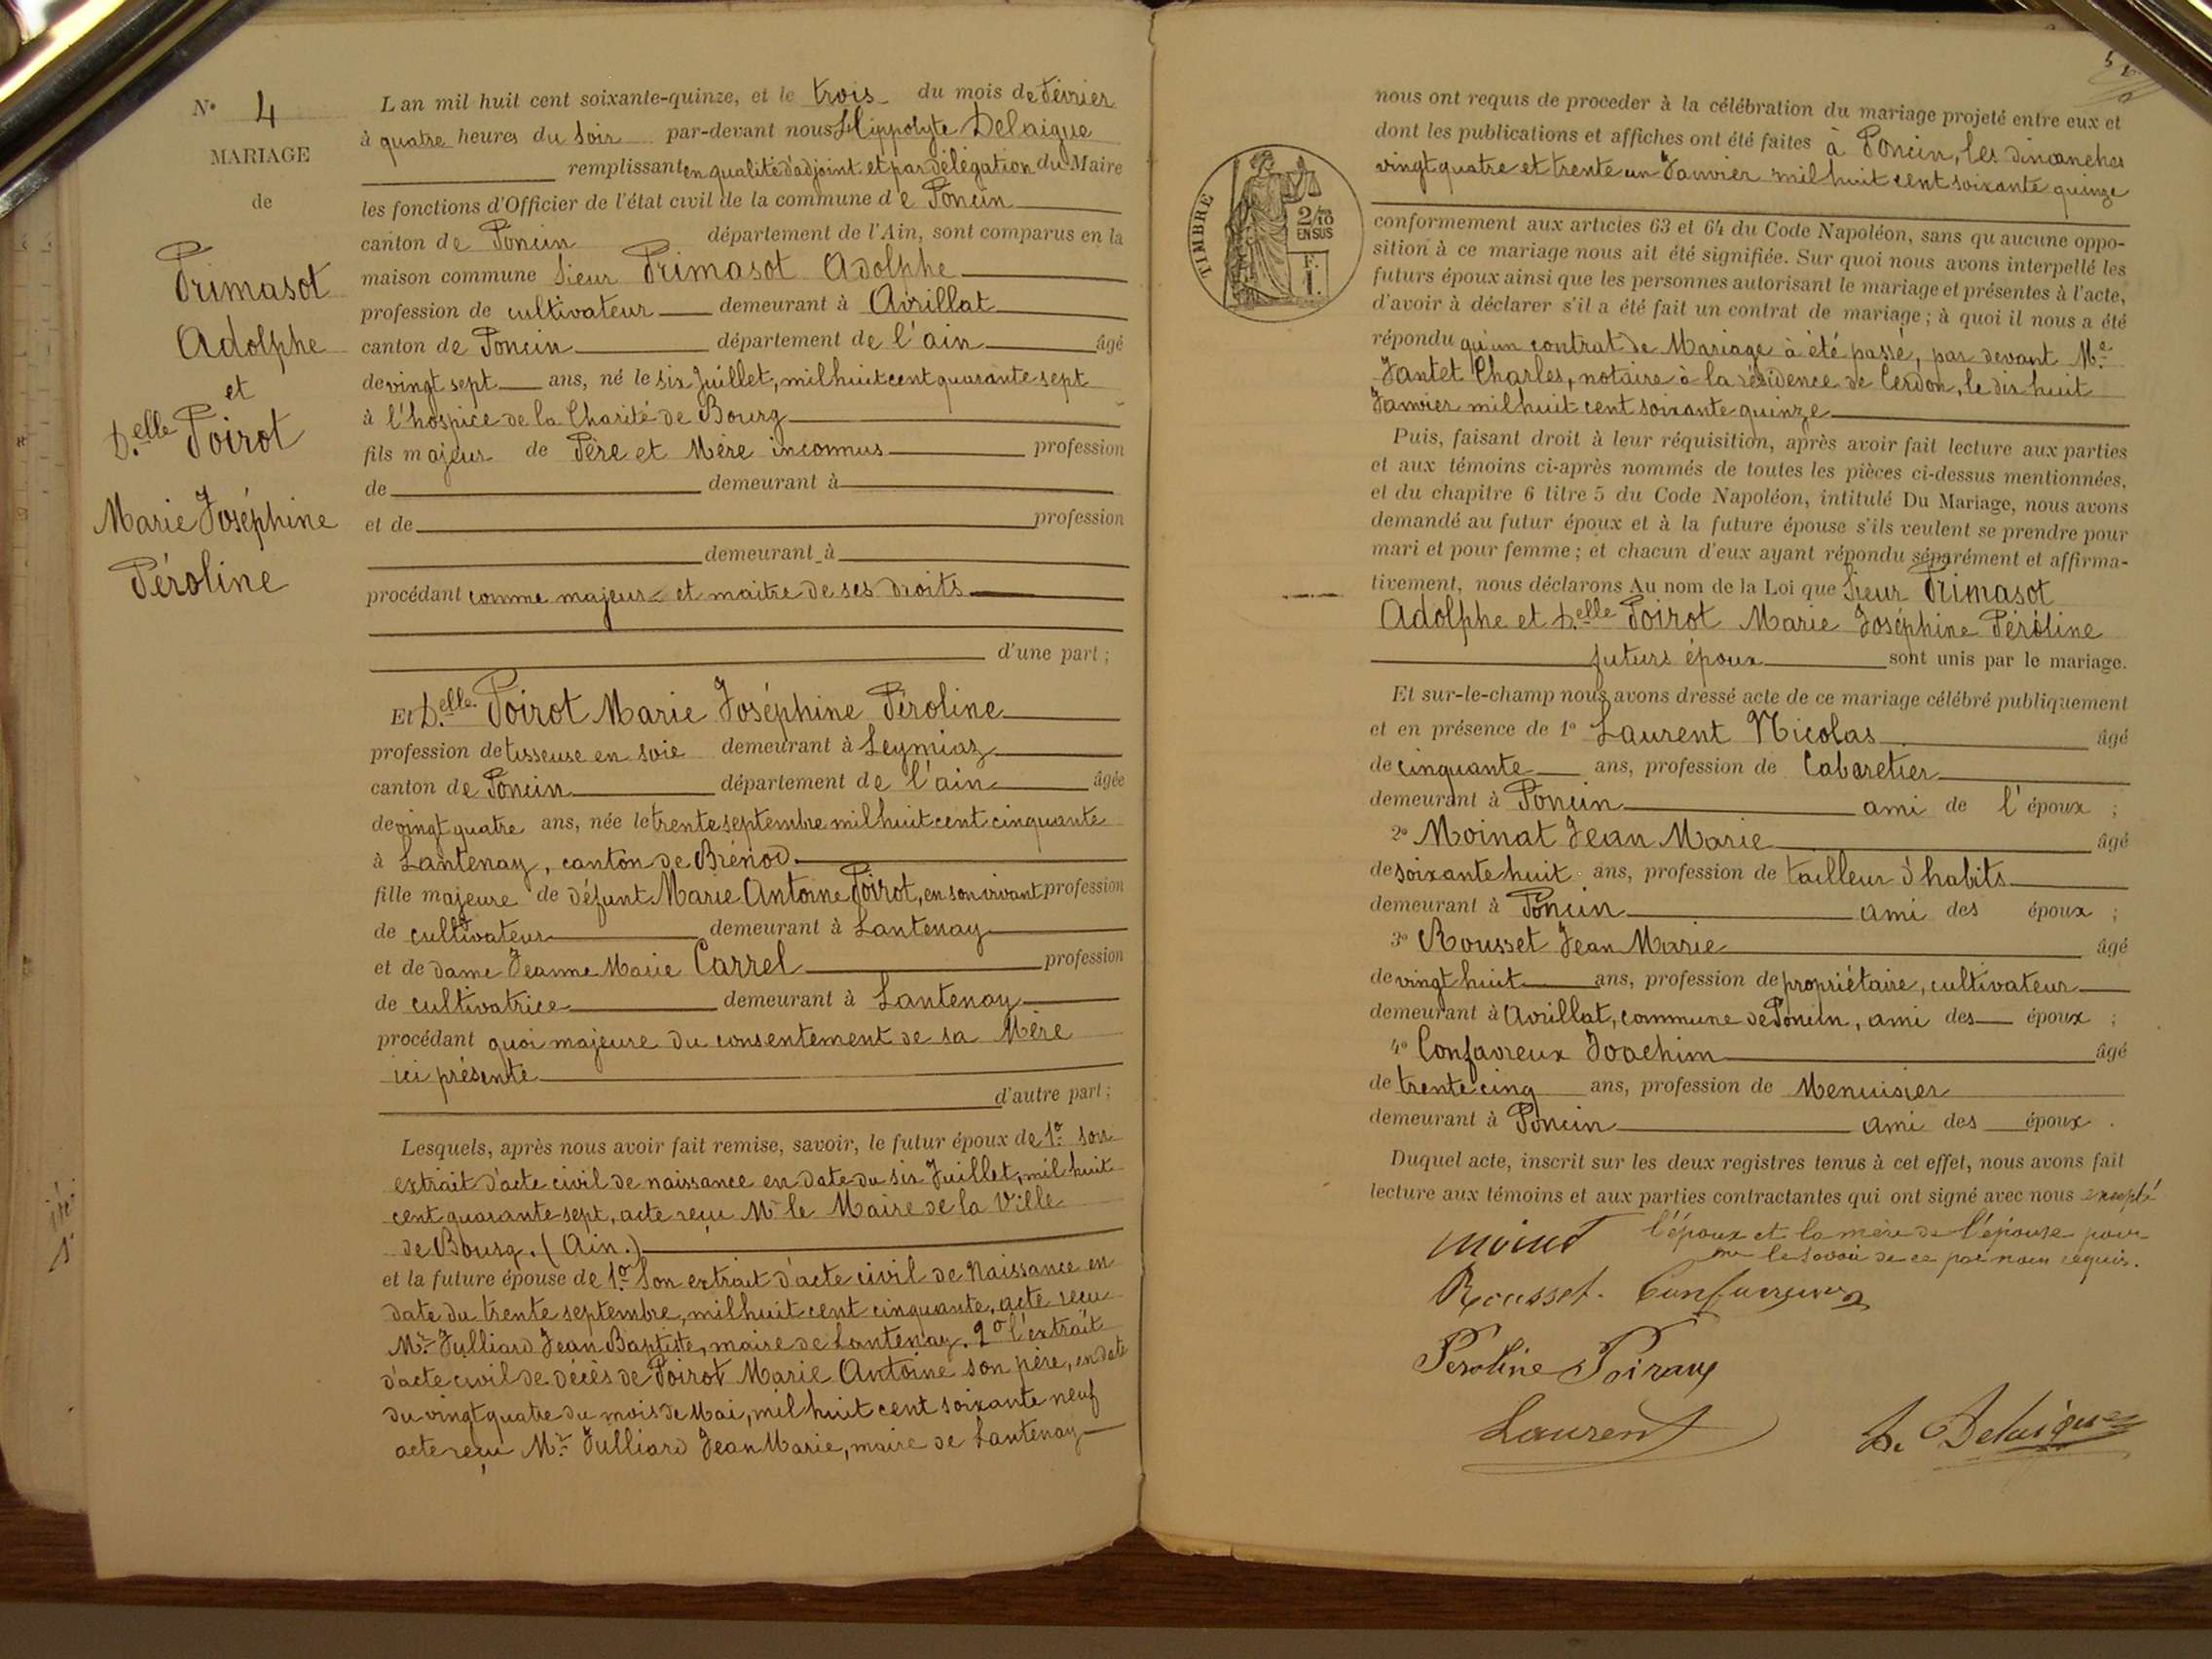 N° 4
MARIAGE
de
Primasot
Adolphe
et
D.elle Poirot
Marie Joséphine
Péroline
L an mil huit cent soixante-quinze, et le trois du mois de Février
à quatre heures du soir par-devant nous Hippolyte Delaigue
remplissant en qualité d'adjoint et par délégation du Maire
les fonctions d'Officier de l'état civil de la commune de Poncin
canton de Poncin département de l'Ain, sont comparus en la
maison commune Sieur Primasot Adolphe
profession de cultivateur demeurant à Avrillat
canton de Poncin département de l'ain âgé
de vingt sept ans, né le six Juillet, mil huit cent quarante sept
à l'hospice de la Charité de Bourg
fils majeur de Père et Mère inconnus profession
de demeurant à
et de profession
demeurant à
procédant comme majeur et maitre de ses droits
d'une part ;
Et D.elle Poirot Marie Joséphine Péroline
profession de tisseuse en soie demeurant à Leymiaz
canton de Poncin département de l'ain âgée
de vingt quatre ans, née le trente septembre mil huit cent cinquante
à Lantenay, canton de Brénod
fille majeure de défunt Marie Antoine Poirot, en son vivant profession
de cultivateur demeurant à Lantenay
et de dame Jeanne Marie Carrel profession
de cultivatrice demeurant à Lantenay
procédant quoi majeure du consentement de sa Mère
ici présente
d'autre part ;
Lesquels, après nous avoir fait remise, savoir, le futur époux de 1.° son
extrait d'acte civil de naissance en date du six Juillet, mil huit
cent quarante sept, acte reçu Mr le Maire de la Ville
de Bourg. (Ain.)
et la future épouse de 1.° Son extrait d'acte civil de Naissance en
date du trente septembre, mil huit cent cinquante, acte reçu
Mr. Julliard Jean Baptiste, maire de Lantenay. 2° l'extrait
d'acte civil de décès de Poirot Marie Antoine son père, en date
du vingt quatre du mois de Mai, mil huit cent soixante neuf
acte reçu Mr. Julliard Jean Marie, maire de Lantenay
5
TIMBRE
2/10
EN SUS
F.
1.
nous ont requis de proceder à la célébration du mariage projeté entre eux et
dont les publications et affiches ont été faites à Poncin, les dimanches
vingt quatre et trente un Janvier mil huit cent soixante quinze
conformement aux articies 63 et 64 du Code Napoléon, sans qu aucune oppo-
sition à ce mariage nous ait été signifiée. Sur quoi nous avons interpellé les
futurs époux ainsi que les personnes autorisant le mariage et présentes à l'acte,
d'avoir à déclarer s'il a été fait un contrat de mariage ; à quoi il nous a été
répondu qu'un contrat de Mariage à été passé, par devant M.e
Jantet Charles, notaire à la résidence de Cerdon, le dix huit
Janvier mil huit cent soixante quinze
Puis, faisant droit à leur réquisition, après avoir fait lecture aux parties
et aux témoins ci-après nommés de toutes les pièces ci-dessus mentionnées,
et du chapitre 6 titre 5 du Code Napoléon, intitulé Du Mariage, nous avons
demandé au futur époux et à la future épouse s'ils veulent se prendre pour
mari et pour femme ; et chacun d'eux ayant répondu séparément et affirma-
tivement, nous déclarons Au nom de la Loi que Sieur Primasot
Adolphe et D.elle Poirot Marie Joséphine Péroline
futurs époux sont unis par le mariage.
Et sur-le-champ nous avons dressé acte de ce mariage célébré publiquement
et en présence de 1° Laurent Nicolas âgé
de cinquante ans, profession de Cabaretier
demeurant à Poncin ami de l'époux ;
2° Moinat Jean Marie âgé
de soixante huit ans, profession de tailleur d'habits
demeurant à Poncin ami des époux ;
3° Rousset Jean Marie âgé
de vingt huit ans, profession de propriétaire, cultivateur
demeurant à Avrillat, commune de Poncin, ami des époux ;
4° Confavreux Joachim âgé
de trente cinq ans, profession de Menuisier
demeurant à Poncin ami des époux .
Duquel acte, inscrit sur les deux registres tenus à cet effet, nous avons fait
lecture aux témoins et aux parties contractantes qui ont signé avec nous excepté
l'époux et la mère de l'épouse pour
ne le savoir de ce par nous requis.
Moinat
Rousset. Confavreux
Peroline Poiraux
Laurent
h. Delaigue